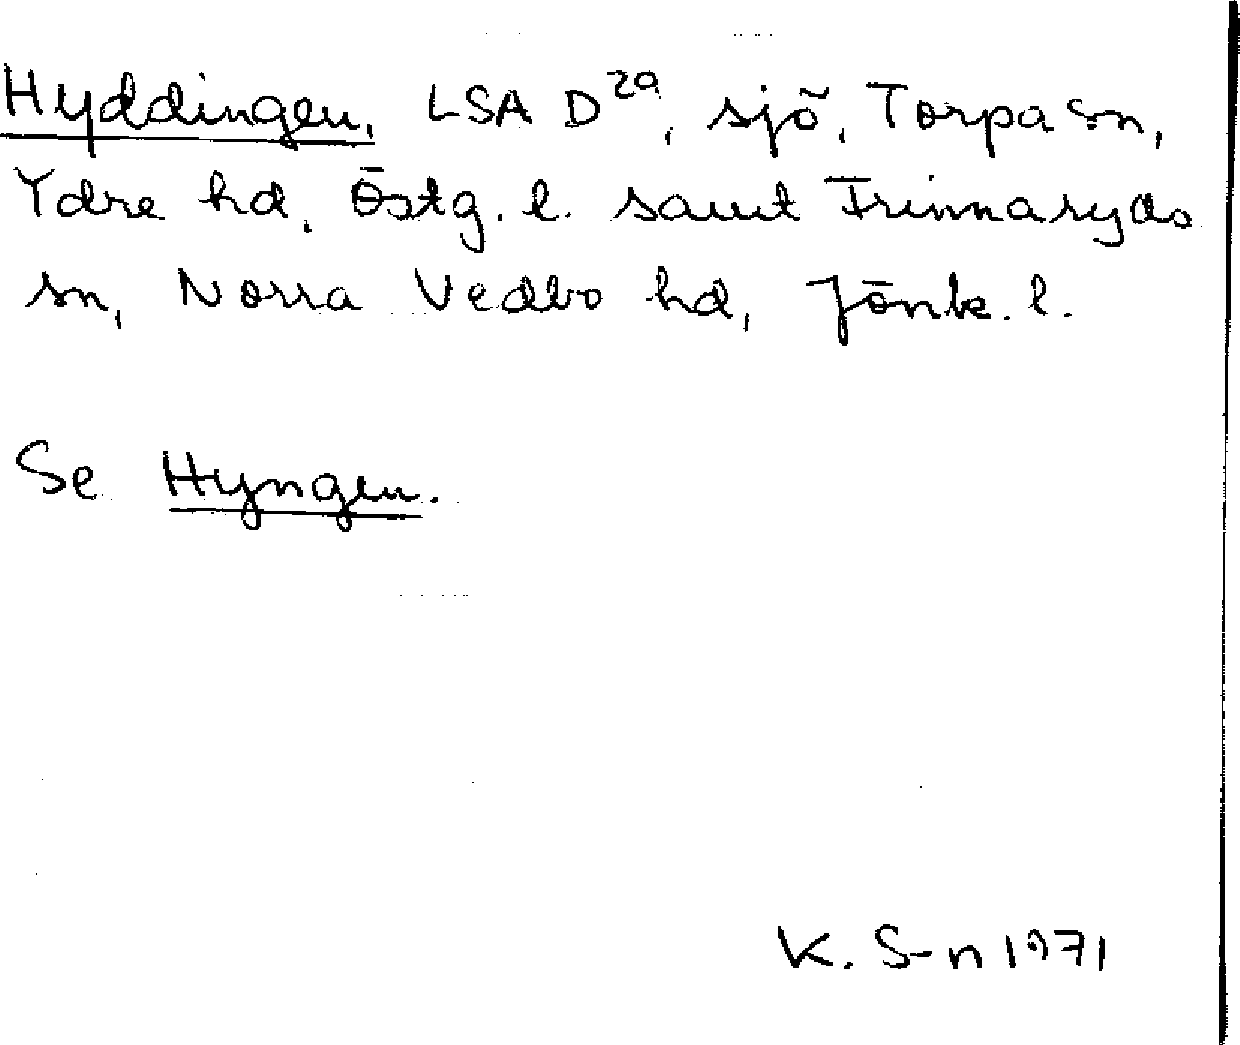 Hyddingen, LSA D²ᵃ, sjö, Torpa sn,
Ydre hd, Östg. l. samt Frinnaryds
sn, Norra Vedbo hd, Jönk. l.
Se Hyngen.
K. S-n 1971